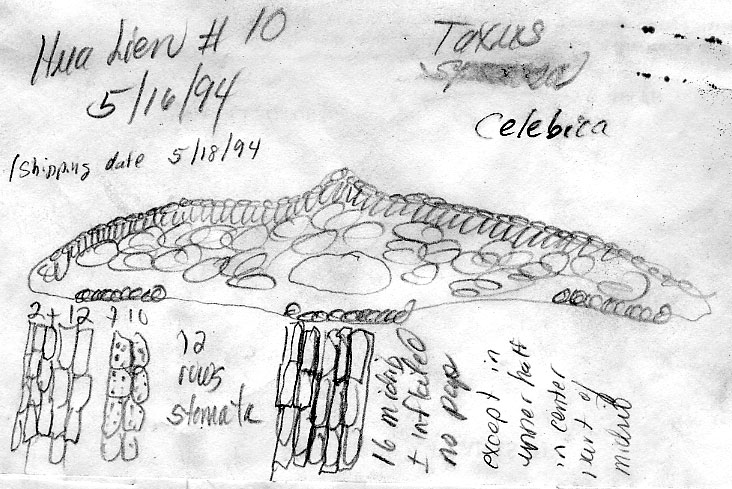 Hua Lien # 10
5/16/94
(Shipping date 5/18/94
Taxus
Celebica
2 + 12 7 10
12
rows
stomata
16 midrib
± inflated
no pap
except in
upper half
in center
part of
midrib